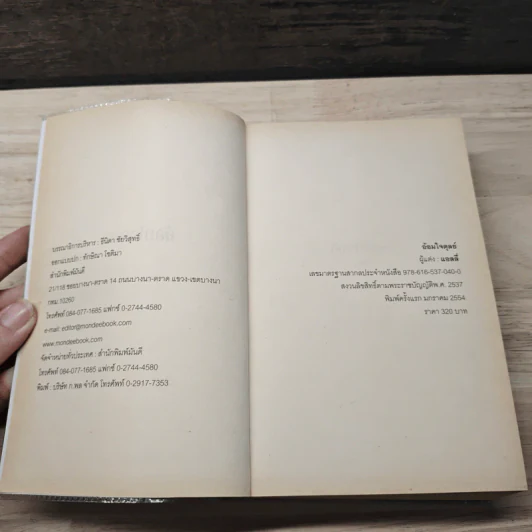 บรรณาธิการบริหาร : ธีนิตา ชัยวิสุทธิ์
ออกแบบปก : ทักษิณา โชติมา
สำนักพิมพ์มันดี
21/118 ซอยบางนา-ตราด 14 ถนนบางนา-ตราด แขวง-เขตบางนา
กทม. 10260
โทรศัพท์ 084-077-1685 แฟกซ์ 0-2744-4580
e-mail: editor@mondeebook.com
www.mondeebook.com
จัดจำหน่ายทั่วประเทศ : สำนักพิมพ์มันดี
โทรศัพท์ 084-077-1685 แฟกซ์ 0-2744-4580
พิมพ์ : บริษัท ก.พล จำกัด โทรศัพท์ 0-2917-7353
อ้อมใจตุลย์
ผู้แต่ง : แอลลี่
เลขมาตรฐานสากลประจำหนังสือ 978-616-537-040-0
สงวนลิขสิทธิ์ตามพระราชบัญญัติพ.ศ. 2537
พิมพ์ครั้งแรก มกราคม 2554
ราคา 320 บาท